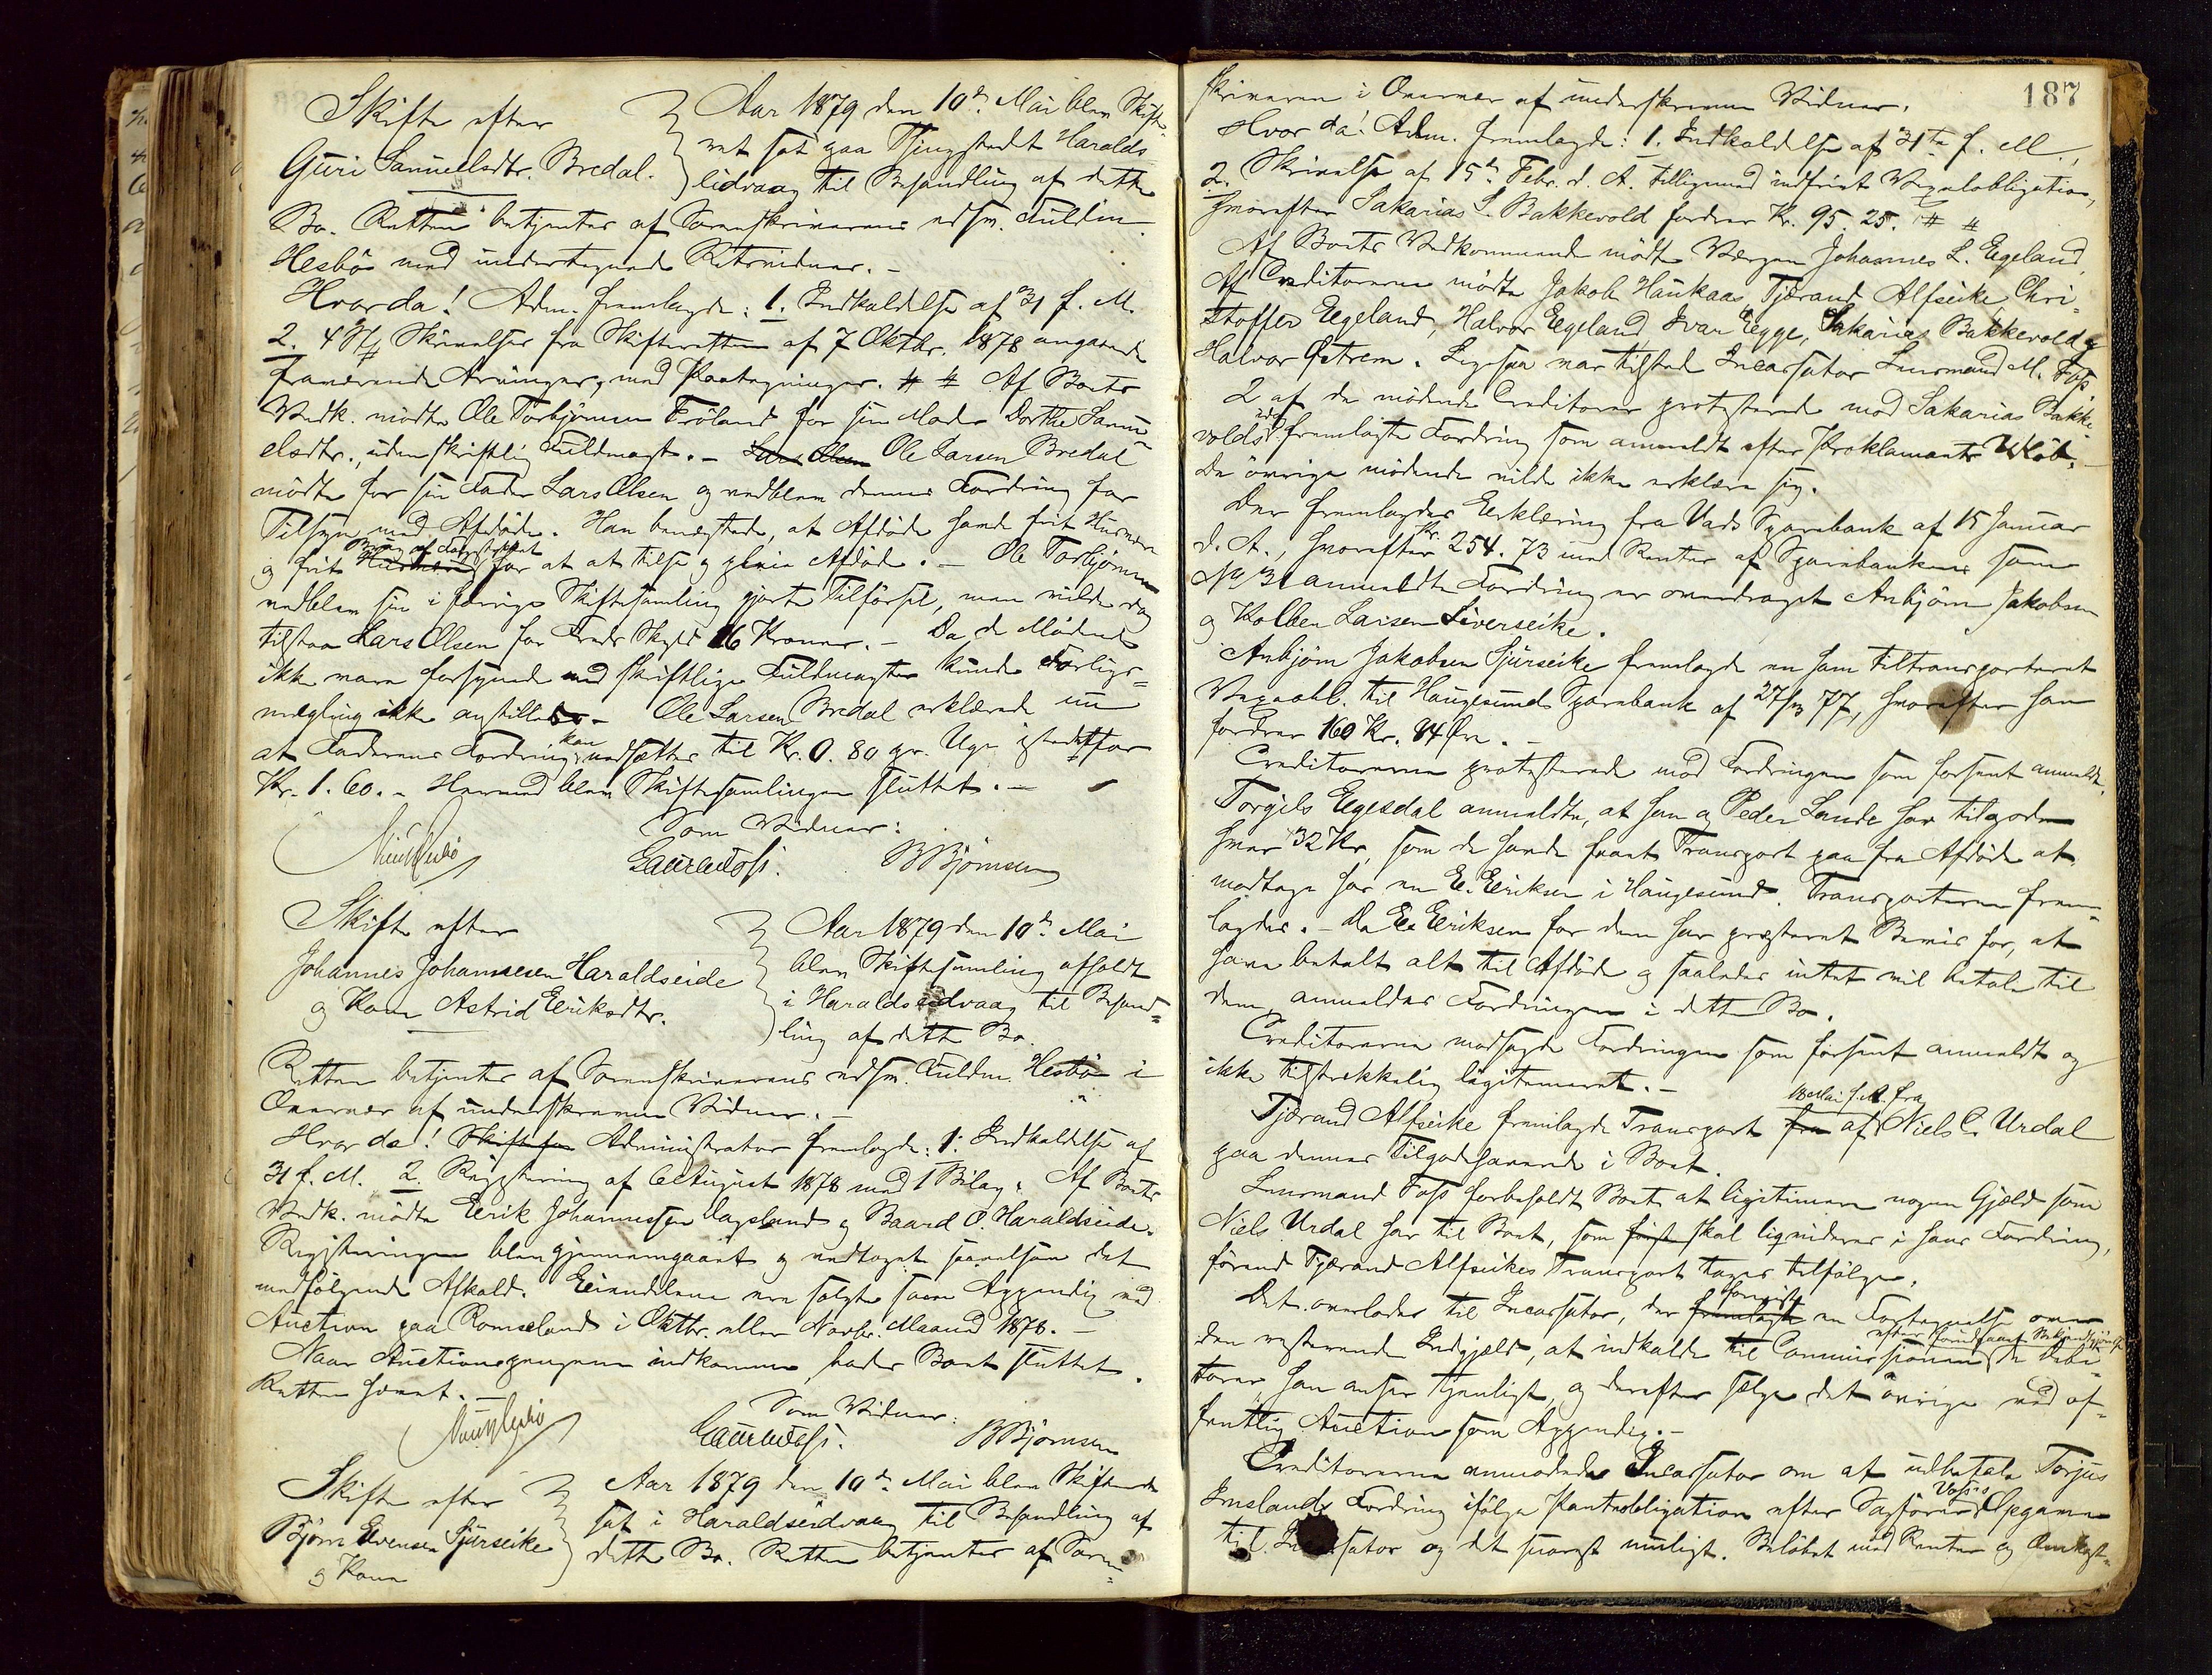 Skifte efter
Guri Samuelsdtr. Bredal.
Aar 1879 den 10de Mai blev Skifte-
ret sat paa Thingstedet Haralds
eidvaag til Behandling af dette
Bo. Retten betjentes af Sorenskriverens edsv. Fuldm.
Hesbö med undertegnede Retsvidner. –
Hvor da! Adm. fremlagde: 1. Indkaldelse af 31 f. M.
2. 4 St. Skrivelser fra Skifteretten af 7 Oktbr. 1878 angaaende
fraværende Arvinger, med Paategninger. # # Af Boets
Vedk. mödte Ole Torbjörnsen Fröland for sin Moder Dorthe Samu-
elsdtr., uden skriftlig Fuldmagt. – Lars Olsen Ole Larsen Bredal
mödte for sin Fader Lars Olsen og vedblev dennes Fordring for
Tilsyn med Afdöde. Han benegtede, at Afdöde havde frit Husvære
og frit Husvære for at at tilse og pleie Afdöde. – Ole Torbjörnsen
vedblev sin i forrige Skiftesamling gjorte Tilförsel, men vilde dog
tilstaa Lars Olsen for Freds Skyld 16 Kroner. – Da de Mödende
ikke vare forsynede med skriftlige Fuldmagter kunde Forligs-
mægling ikke anstilles. – Ole Larsen Bredal erklærede nu
at Faderens Fordring kan nedsættes til Kr. 0. 80 pr. Uge istedetfor
Kr. 1. 60. – Hermed blev Skiftesamlingen sluttet. –
Som Vidner:
Gaurautoss. B Björnsen
Skifte efter
Johannes Johannesen Haraldseide
og Kone Astrid Eeriksdtr.
Aar 1879 den 10de Mai
blev Skiftesamling afholdt
i Haraldseidvaag til Behand-
ling af dette Bo.
Retten betjentes af Sorenskriverens edsv. Fuldm. Hesbö i
Overvær af underskrevne Vidner. –
Hvor da! Administrator fremlagde: 1. Indkaldelse af
31 f. M. 2. Registrering af 6 August 1878 med 1 Bilag. Af Boets
Vedk. mödte Eerik Johannessen Dagsland og Baard O. Haraldseide.
Registreringen blev gjennemgaaet og vedtaget saavelsom det
medfölgende Afkald. Eiendelene ere solgte som Appendix ved
Auction paa Romseland i Oktbr. eller Novbr. Maaned 1878. –
Naar Auctionspengene indkomme, bedes Boet sluttet.
Retten hævet. –
Som Vidner:
Gaurautoss. B Björnsen
Skifte efter
Björn Evensen Sjurseike
og Kone
Aar 1879 den 10de Mai blev Skifteret
sat i Haraldseidvaag til Behandling af
dette Bo. Retten betjentes af Soren-
187
skriveren i Overvær af underskrevne Vidner.
Hvor da! Adm. fremlagde: 1. Indkaldelse af 31te f. M.,
2. Skrivelse af 15de Febr. d. A. tilligemed indfriet Vexelobligation,
hvorefter Sakarias S. Bakkevold fordrer Kr. 95. 25. # #
Af Boets Vedkommende mödte Værgen Johannes L. Eegeland.
Af Creditorerne mödte Jakob Haukaas, Tjærand Alfseike, Chri-
stoffer Eegeland, Halvor Eegeland, Ivar Eegge, Sakarias Bakkevold og
Halvor Östrem. Ligesaa var tilstede Incassator Lensmand M. Foss.
2 af de mödende Creditorer protesterede mod Sakarias Bakke-
volds fremlagte Fordring som anmeldt efter Proklamaets Udlöb. –
De övrige mödende vilde ikke erklære sig.
Der fremlagdes Erklæring fra Vads Sparebank af 15 Januar
d. A., hvorefter Kr. 254. 73 med Renter af Sparebankens som
No 31 anmeldte Fordring er overdraget Anbjörn Jakobsen
og Kolben Larsen Siverseike.
Anbjörn Jakobsen Sjurseike fremlagde en ham tiltransporteret
Vexelobl. til Haugesunds Sparebank af 27/3 77, hvorefter han
fordrer 160 Kr. 84 Öre. –
Creditorerne protesterede mod Fordringen som forsent anmeldt.
Torgils Eegesdal anmeldte, at han og Peder Lunde har tilgode
hver 32 Kr, som de havde faaet Transport paa fra Afdöde at
modtage hos en E. Eeriksen i Haugesund. Transporterne frem-
lagdes. – Da E. Eeriksen for dem har præsteret Bevis for, at
have betalt alt til Afdöde og saaledes intet vil betale til
dem, anmeldes Fordringen i dette Bo.
Creditorerne modsagde Fordringen som forsent anmeldt og
ikke tilstrækkelig legitimeret. –
Tjærand Alfseike fremlagde Transport fra af Niels C. Urdal
paa dennes Tilgodehavende i Boet.
Lensmand Foss forbeholdt Boet at legitimere nogen Gjæld som
Niels Urdal har til Boet, som först skal liqvideres i hans Fordring,
förend Tjærand Alfseikes Transport tages tilfölge.
Det overlodes til Incassator, der fremlagde en Fortegnelse over
den resterende Indgjæld, at indkalde til Commissionen de Debi-
torer han anser tjenligt, og derefter sælge det övrige ved of-
fentlig Auction som Appendix. –
Creditorerne anmodede Incassator om at udbetale Torjus
Imslands Fordring ifölge Panteobligation efter Sagförer
til Incassator og det snarest muligt. Belöbet med Renter og Omkost-